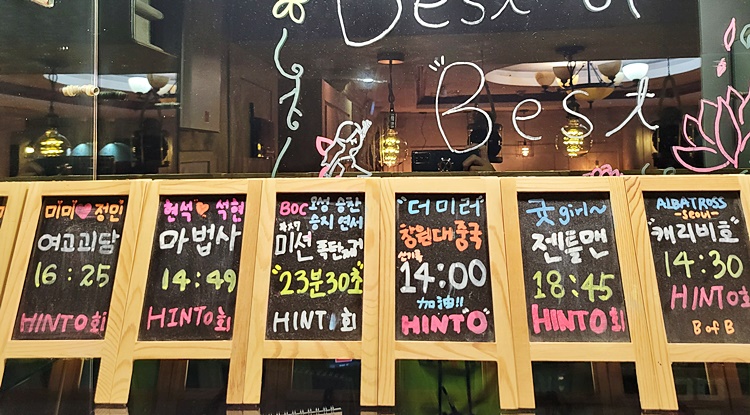 Best of
"Best
미미♥정민
여고괴담
16:25
HINT0회
현석♥석현
마법사
14:49
HINT0회
BOC
승지 연서
미션 폭단제거
"23분30초"
HINT 회
"더 미러
창원대 중국
14:00
加油!!
HINT"0"
굿 girl~
젠틀맨
18:45
HINT0회
ALBATROSS
-seoul-
"캐리비호"
14:30
HINT0회
B of B